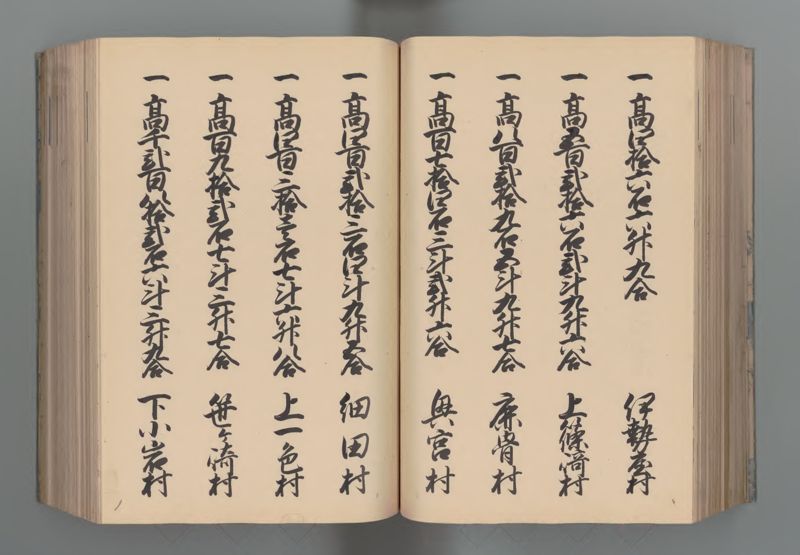 一 髙四拾六石六升九合 伊勢屋村
一 髙五百弐拾六石弐斗九升六合 上篠﨑村
一 髙八百弐拾九石五斗九升七合 鹿骨村
一 髙百七拾四石三斗弐升六合 興宮村
一 髙四百弐拾三石四斗九升五合 細田村
一 髙四百三拾壱石七斗六升八合 上一色村
一 髙百九拾弐石七斗三升七合 笹ヶ崎村
一 髙千弐百八拾弐石六斗三升九合 下小岩村